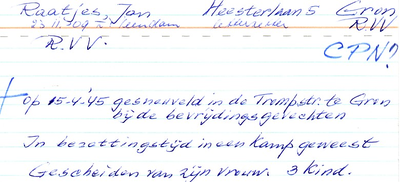 Raatjes, Jan Heesterlaan 5 Gron
23.11.09 te Veendam R.VV
R.V.V. CPN?
Op 15-4-'45 gesneuveld in de Trompstr. te Gron
bij de bevrijdingsgevechten
In bezettingstijd in een Kamp geweest
Gescheiden van zijn vrouw. 3 Kind.